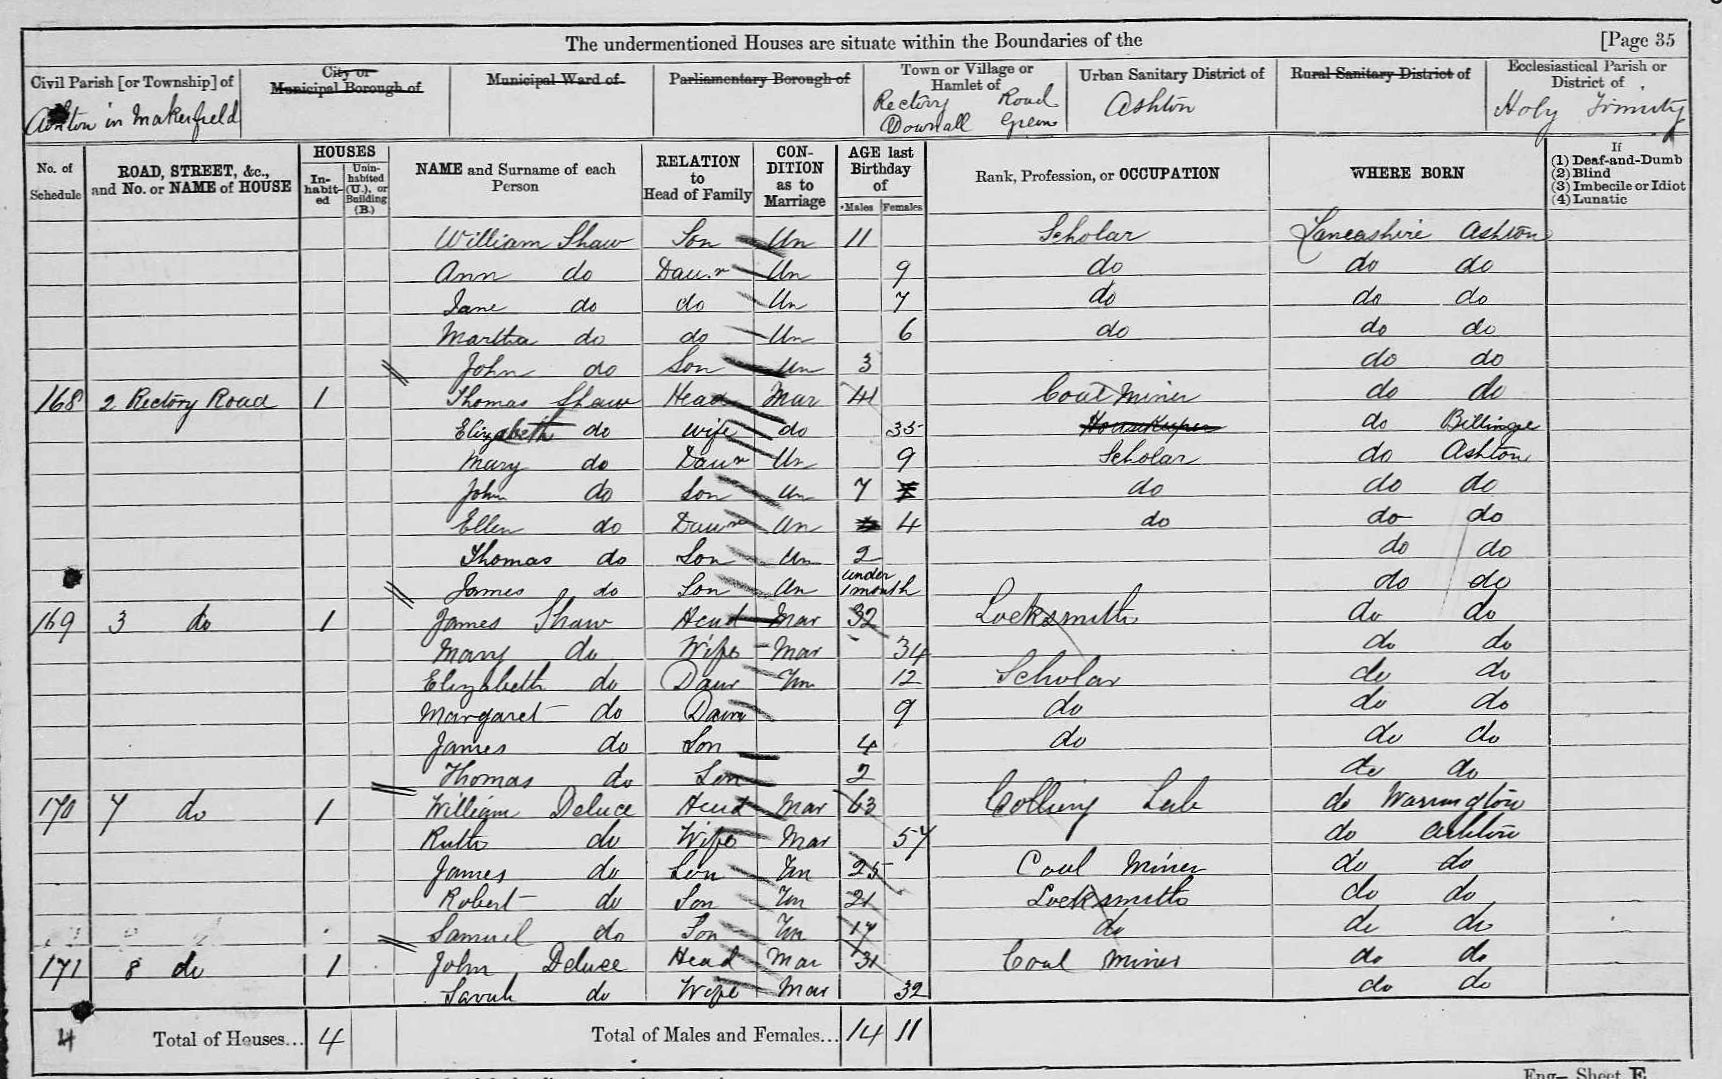 The undermentioned Houses are situate within the Boundaries of the [Page 35
Civil Parish [or Township] of City or Municipal Borough of Municipal Ward of Parliamentary Borough of Town or Village or Hamlet of Urban Sanitary District of Rural Sanitary District of Ecclesiastical Parish or District of
Ashton in Makerfield Rectory Road Downall Green Ashton Holy Trinity
No. of Schedule ROAD, STREET, &c., and No. or NAME of HOUSE HOUSES Inhabited Uninhabited (U.), or Building (B.) NAME and Surname of each Person RELATION to Head of Family CONDITION as to Marriage AGE last Birthday of Males Females Rank, Profession, or OCCUPATION WHERE BORN If (1) Deaf-and-Dumb (2) Blind (3) Imbecile or Idiot (4) Lunatic
William Shaw Son Un 11 Scholar Lancashire Ashton
Ann do Daur Un 9 do do do
Jane do do Un 7 do do do
Martha do do Un 6 do do do
John do Son Un 3 do do
168 2 Rectory Road 1 Thomas Shaw Head Mar 41 Coal Miner do do
Elizabeth do wife do 35 Housekeeper do Billinge
Mary do Daur Un 9 Scholar do Ashton
John do Son Un 7 do do do
Ellen do Daur Un 4 do do do
Thomas do Son Un 2 do do
James do Son Un under 1 month do do
169 3 do 1 James Shaw Head Mar 32 Locksmith do do
Mary do Wife Mar 34 do do
Elizabeth do Daur Un 12 Scholar do do
Margaret do Daur 9 do do do
James do Son 4 do do do
Thomas do Son 2 do do
170 7 do 1 William Deluce Head Mar 63 Colliery Lab do Warrington
Ruth do Wife Mar 57 do Ashton
James do Son Un 25 Coal Miner do do
Robert do Son Un 21 Locksmith do do
Samuel do Son Un 17 do do do
171 8 do 1 John Deluce Head Mar 31 Coal Miner do do
Sarah do Wife Mar 32 do do
4 Total of Houses... 4 Total of Males and Females... 14 11
Eng—Sheet E